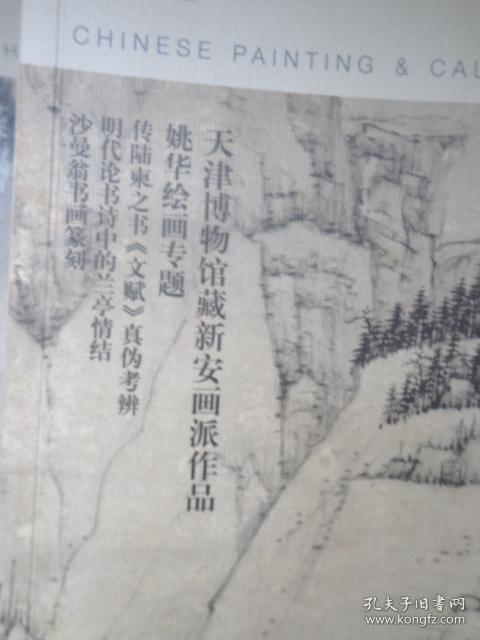 CHINESE PAINTING & CAL
H
天津博物馆藏新安画派作品
姚华绘画专题
传陆柬之书《文赋》真伪考辨
明代论书诗中的兰亭情结
沙曼翁书画篆刻
孔夫子旧书网
www.kongfz.com